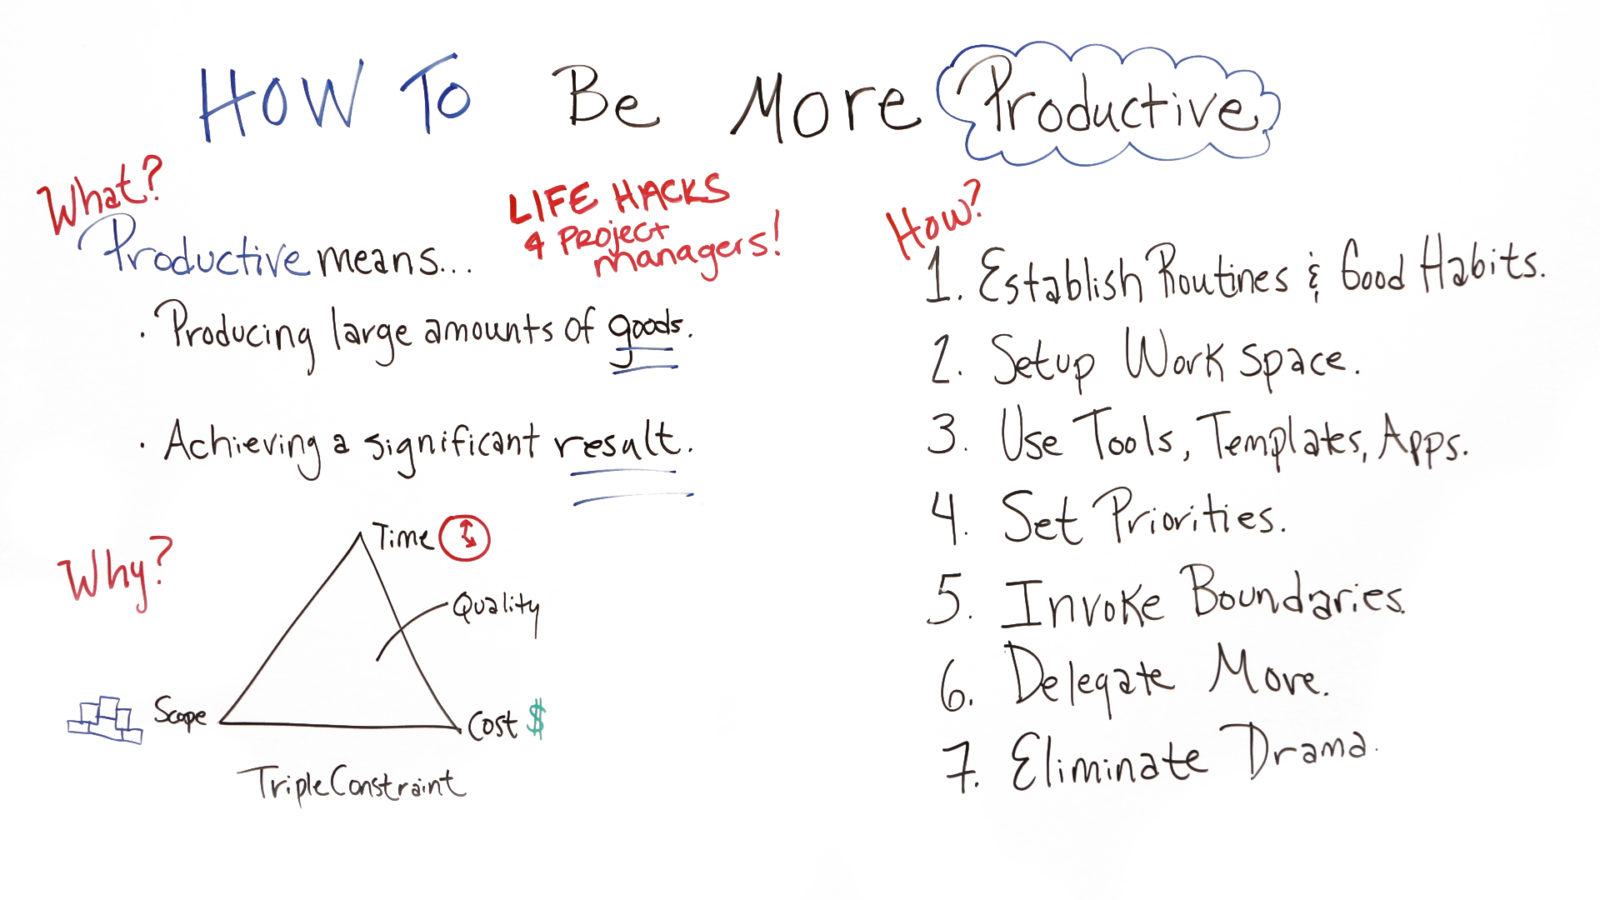 HOW To Be More Productive
What?
Productive means...
LIFE HACKS
4 Project
managers!
· Producing large amounts of goods.
· Achieving a significant result.
Why?
Time
Quality
Scope
Cost $
Triple Constraint
How?
1. Establish Routines & Good Habits.
2. Setup Work Space.
3. Use Tools, Templates, Apps.
4. Set Priorities.
5. Invoke Boundaries.
6. Delegate More.
7. Eliminate Drama.